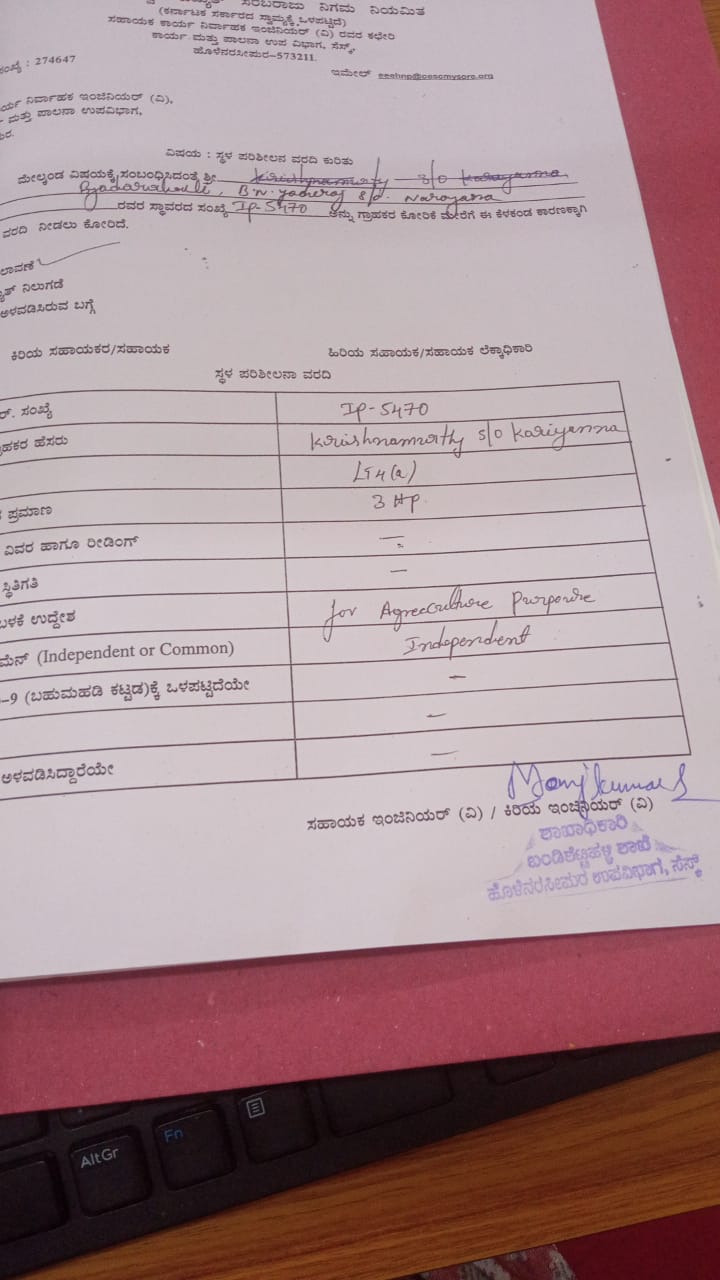 ಸರಬರಾಜು ನಿಗಮ ನಿಯಮಿತ
(ಕರ್ನಾಟಕ ಸರ್ಕಾರದ ಸ್ವಾಮ್ಯಕ್ಕೆ ಒಳಪಟ್ಟಿದೆ)
ಸಹಾಯಕ ಕಾರ್ಯ ನಿರ್ವಾಹಕ ಇಂಜಿನಿಯರ್ (ವಿ) ರವರ ಕಛೇರಿ
ಕಾರ್ಯ ಮತ್ತು ಪಾಲನಾ ಉಪ ವಿಭಾಗ, ಸೆಸ್ಕ್,
ಹೊಳೆನರಸೀಪುರ-573211.
: 274647
ಇಮೇಲ್ eeehnp@cescmysore.org
ನಿರ್ವಾಹಕ ಇಂಜಿನಿಯರ್ (ವಿ),
ಮತ್ತು ಪಾಲನಾ ಉಪವಿಭಾಗ,
ವಿಷಯ : ಸ್ಥಳ ಪರಿಶೀಲನ ವರದಿ ಕುರಿತು
ಮೇಲ್ಕಂಡ ವಿಷಯಕ್ಕೆ ಸಂಬಂಧಿಸಿದಂತೆ ಶ್ರೀ krishnamurthy - S/O karayanna
B N. S/o. Narayana
ರವರ ಸ್ಥಾವರದ ಸಂಖ್ಯೆ IP-5470 ಅನ್ನು ಗ್ರಾಹಕರ ಕೋರಿಕೆ ಮೇರೆಗೆ ಈ ಕೆಳಕಂಡ ಕಾರಣಕ್ಕಾಗಿ
ವರದಿ ನೀಡಲು ಕೋರಿದೆ.
ನಿಲುಗಡೆ
ಅಳವಡಿಸಿರುವ ಬಗ್ಗೆ
ಕಿರಿಯ ಸಹಾಯಕರ/ಸಹಾಯಕ ಹಿರಿಯ ಸಹಾಯಕ/ಸಹಾಯಕ ಲೆಕ್ಕಾಧಿಕಾರಿ
ಸ್ಥಳ ಪರಿಶೀಲನಾ ವರದಿ
ಆರ್. ಸಂಖ್ಯೆ IP-5470
ಹೆಸರು Krishnamurthy S/o Kariyanna
LT4(a)
ಪ್ರಮಾಣ 3 HP.
ವಿವರ ಹಾಗೂ ರೀಡಿಂಗ್ —
ಸ್ಥಿತಿಗತಿ —
ಉದ್ದೇಶ for Agreeculture Purpouse
(Independent or Common) Independent
-9 (ಬಹುಮಹಡಿ ಕಟ್ಟಡ)ಕ್ಕೆ ಒಳಪಟ್ಟಿದೆಯೇ —
—
ಅಳವಡಿಸಿದ್ದಾರೆಯೇ —
ಸಹಾಯಕ ಇಂಜಿನಿಯರ್ (ವಿ) / ಕಿರಿಯ ಇಂಜಿನಿಯರ್ (ವಿ)
ಶಾಖಾಧಿಕಾರಿ
ಬಂಡಿಶೆಟ್ಟಿಹಳ್ಳಿ ಶಾಖೆ
ಹೊಳೆನರಸೀಪುರ ಉಪವಿಭಾಗ, ಸೆಸ್ಕ್
AltGr
Fn